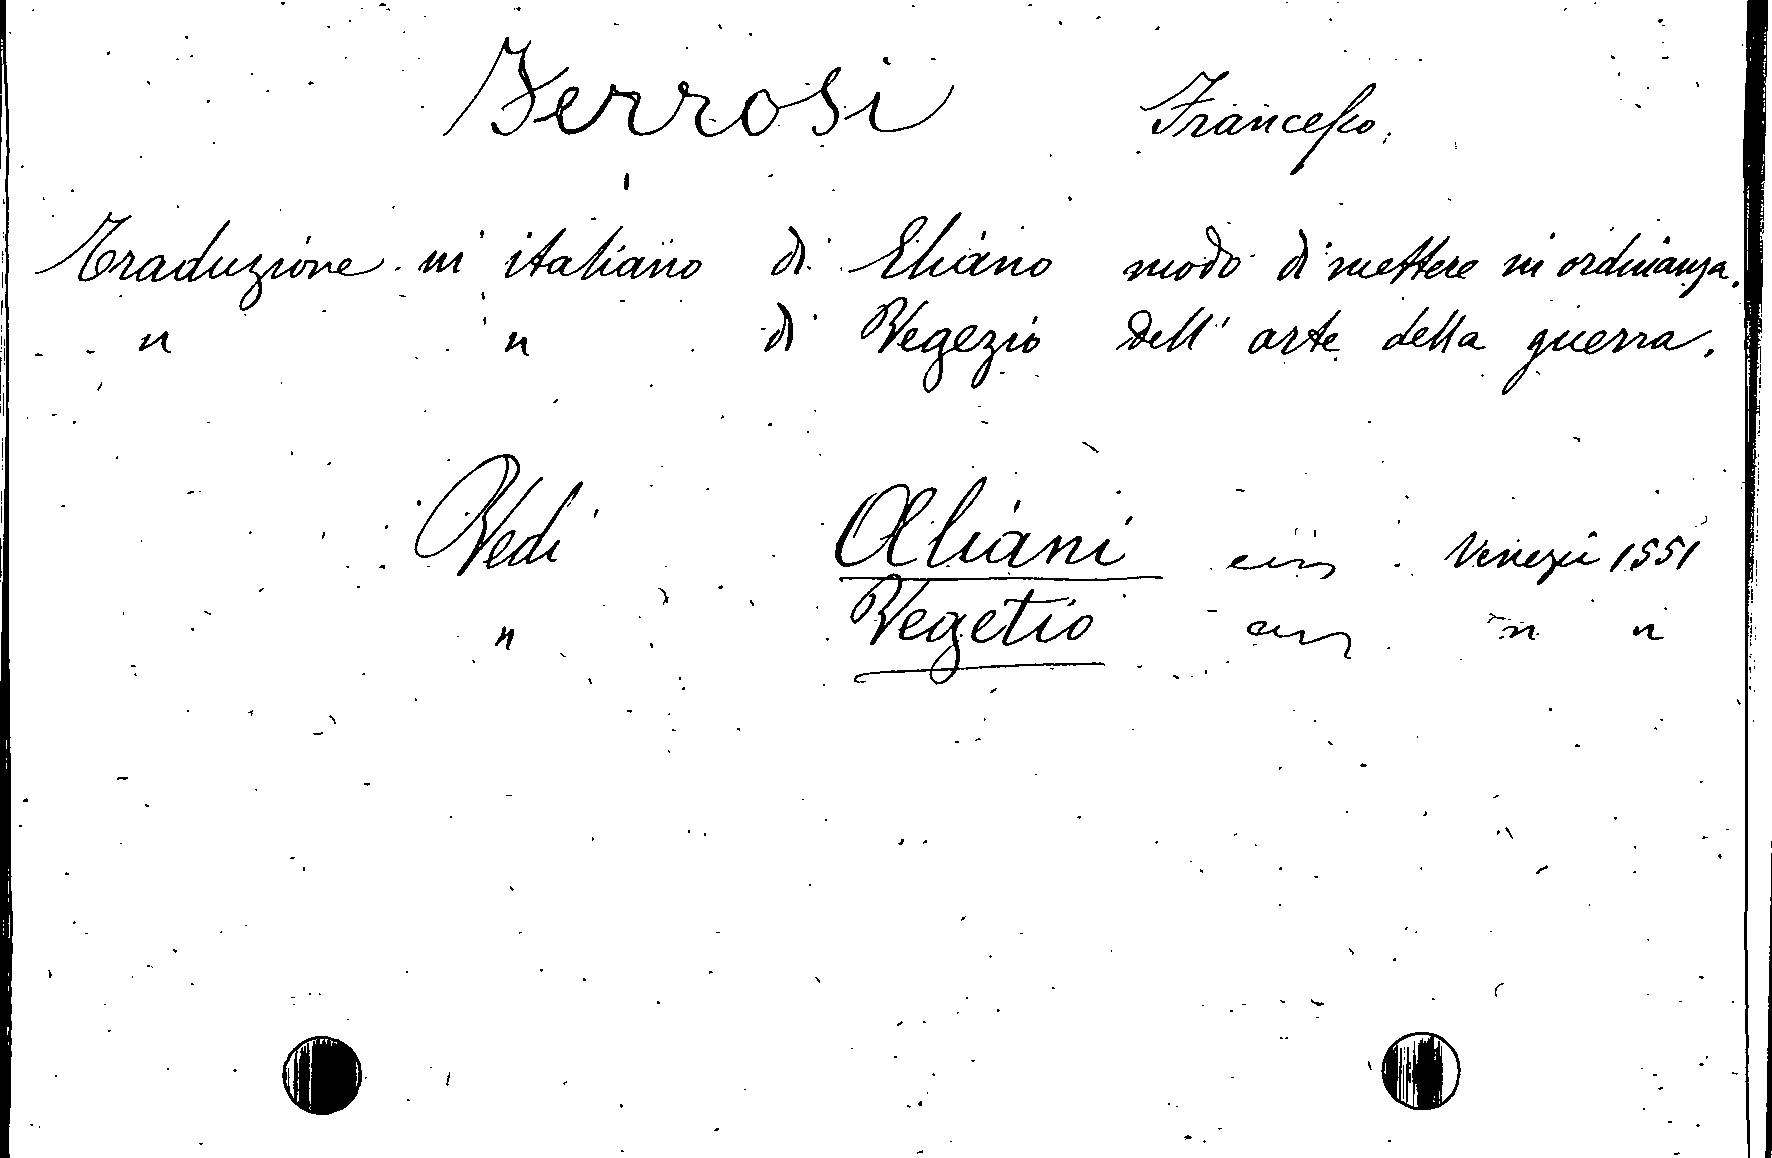 Ferrosi Francesco.
Traduzione in italiano di Eliano modo di mettere in ordinanza.
" " di Vegezio dell' arte della guerra.
Vedi Aeliani Venezia 1551
" Vegetio " "